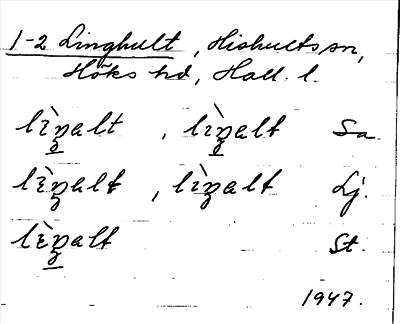 1-2 Linghult, Hishults sn,
Höks hd, Hall. l.
lìŋalt, lìŋalt Sa.
lìŋalt, lìŋalt Lj.
lìŋalt St.
1947.